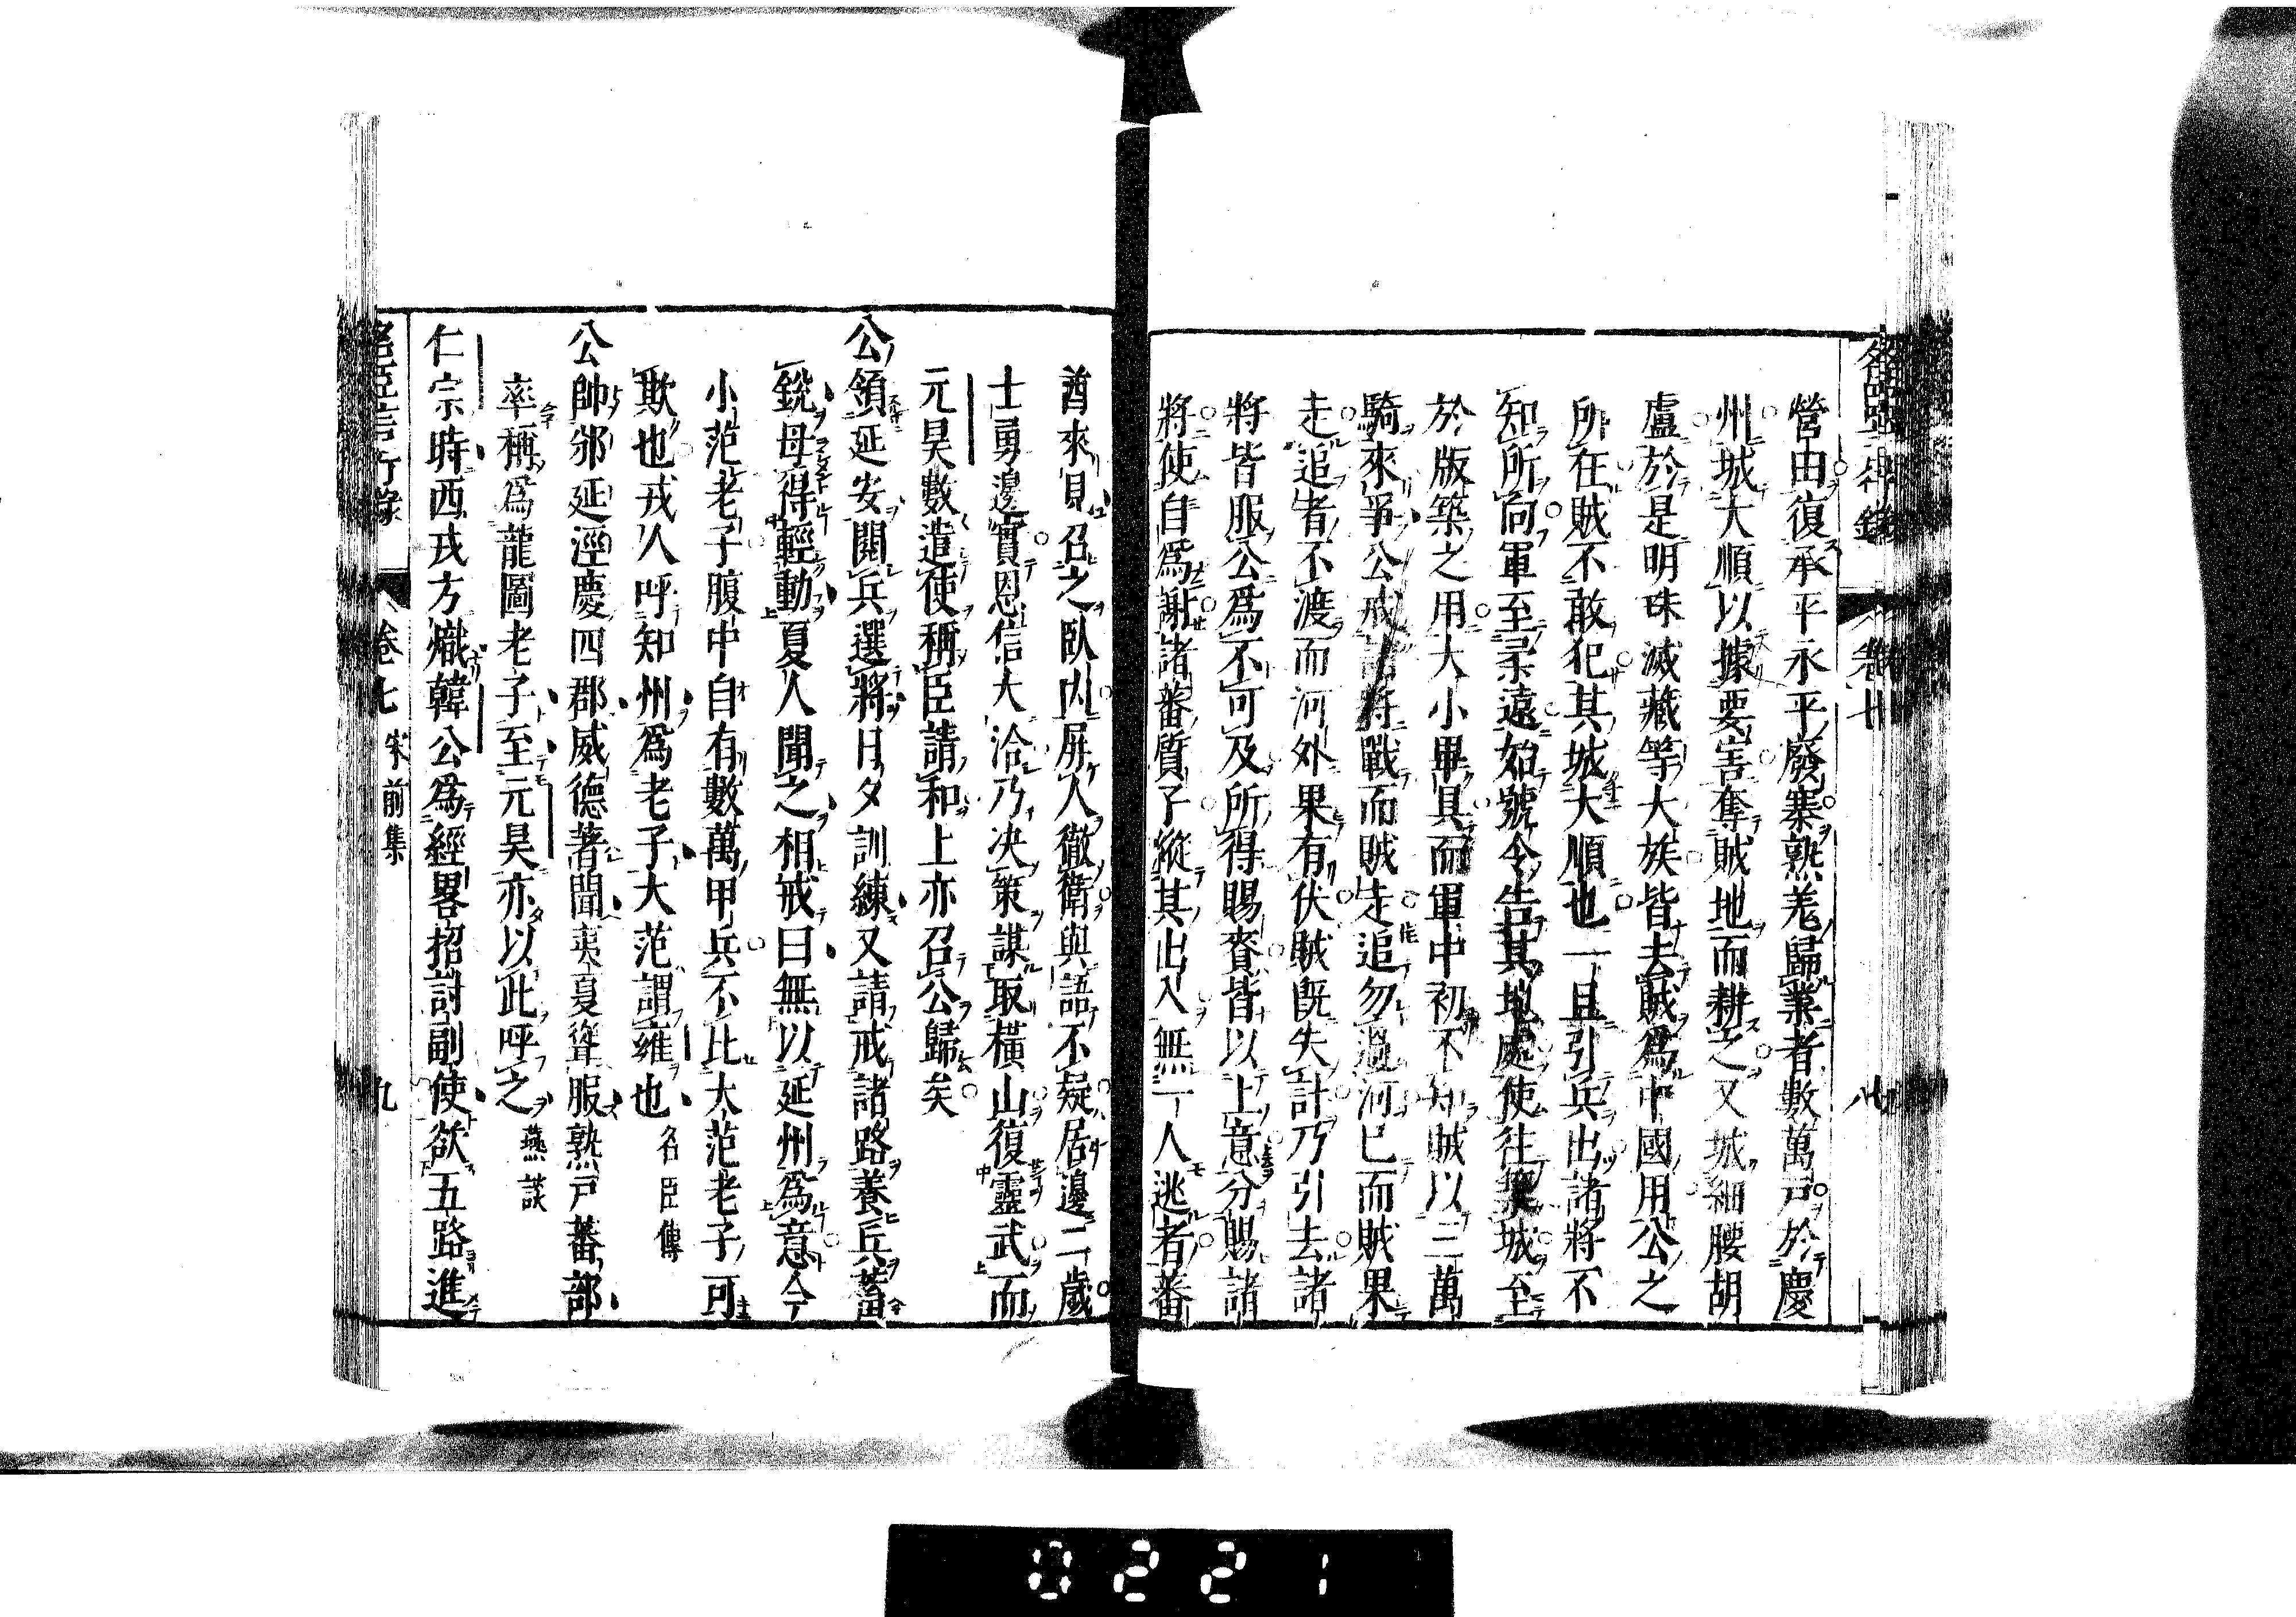 營田復承平永平廢寨熟羌歸業者數萬戸於慶
州城大順以據要害奪賊地而耕之又城細腰胡
盧於是明珠滅藏等大族皆去賊爲中國用公之
所在賊不敢犯其城大順也一旦引兵出諸將不
知所向軍至柔遠始號令告其地處使往築城至
於版築之用大小畢具而軍中初不知賊以三萬
騎來爭公戒諸將戰而賊走追勿過河已而賊果
走追者不渡而河外果有伏賊既失計乃引去諸
將皆服公爲不可及所得賜賚皆以上意分賜諸
將使自爲謝諸蕃質子縱其出入無一人逃者蕃
酋來見召之臥内屏人徹衛與語不疑居邊二歲
士勇邊實恩信大洽乃决策謀取橫山復靈武而
元昊數遣使稱臣請和上亦召公歸矣
公領延安閱兵選將日夕訓練又請戒諸路養兵蓄
銳毋得輕動夏人聞之相戒曰無以延州爲意今
小范老子腹中自有數萬甲兵不比大范老子可
欺也戎人呼知州爲老子大范謂雍也 名臣傳
公帥邠延涇慶四郡威德著聞夷夏聳服熟戸蕃部
率稱爲龍圖老子至元昊亦以此呼之 燕談
仁宗時西戎方熾韓公爲經畧招討副使欲五路進
名臣言行録 卷七 宋前集 九
0221